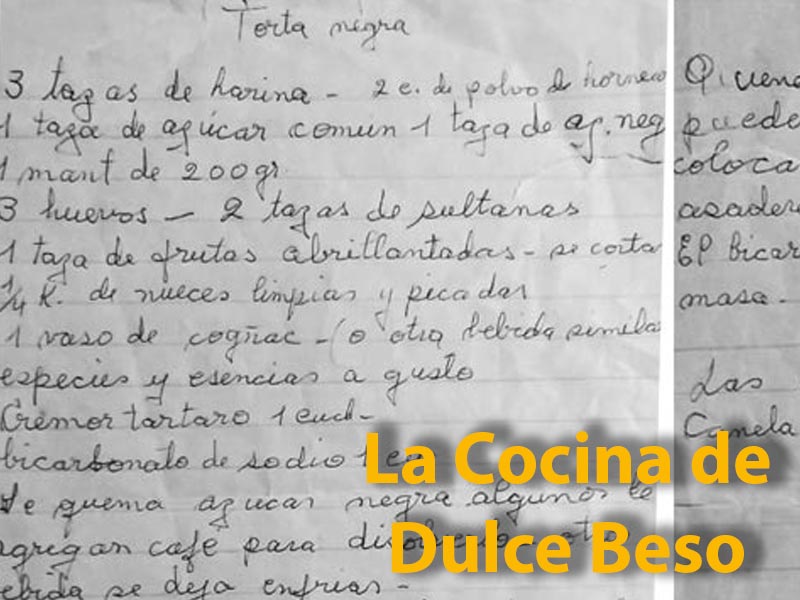 Torta negra
3 tazas de harina - 2 c. de polvo de hornear
1 taza de azúcar comun 1 taza de az. neg
1 mant de 200gr
3 huevos - 2 tazas de sultanas
1 taza de frutas abrillantadas - se corta
1/4 K. de nueces limpias y picadas
1 vaso de cogñac - (o otra bebida simila
especies y esencias a gusto
Cremor tartaro 1 cud -
bicarbonato de sodio 1
Se quema azucar negra algunos le
agregan café para
ebida se deja enfriar -
puede
coloca
asadera
El bicar
masa -
Las
Canela
La Cocina de
Dulce Beso